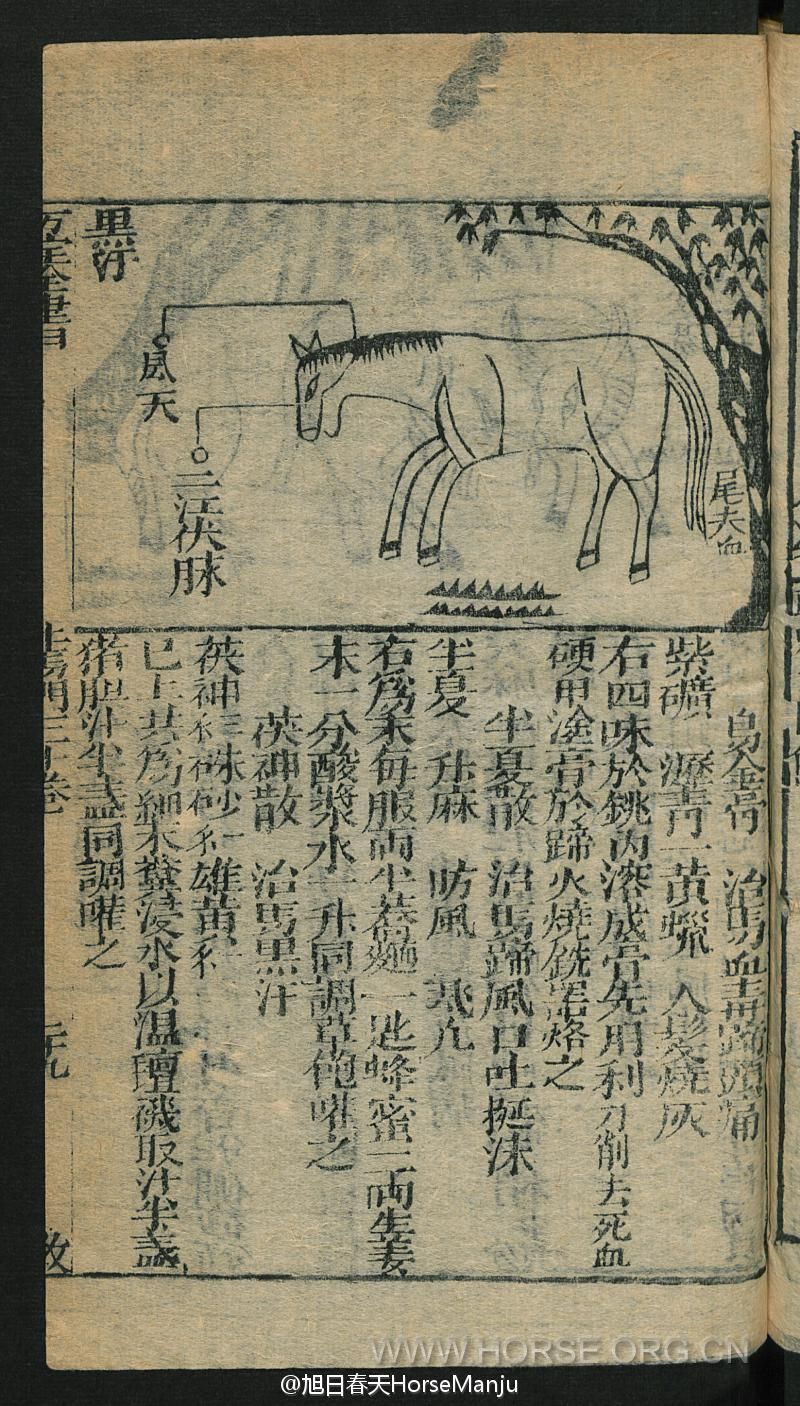 黒汗
風天
三江伏脉
尾夫血
白及金膏 治馬血埀蹄頭痛
紫礦 瀝青一黄蠟 人髮燒灰
右四味於銚内溶成膏先用利刀削去死血
硬甲塗膏於蹄火燒銑噐烙之
半夏散 治馬蹄風口吐挻沫
半夏 升麻 防風 飛凢
右爲末毎服両半蕎麺一匙蜂蜜三両生姜
末一分酸漿水一升同調草飽嚾之
茯神散 治馬黒汗
茯神 硃砂 雄黄
已上共爲細末糞浸水以温 取汁半盞
猪胆汁半盞同調嚾之
卷
二十九
WWW.HORSE.ORG.CN
@旭日春天HorseManju